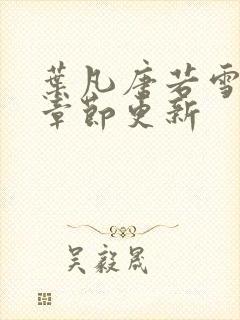 葉凡唐若雪
章節更新
吴毅晟